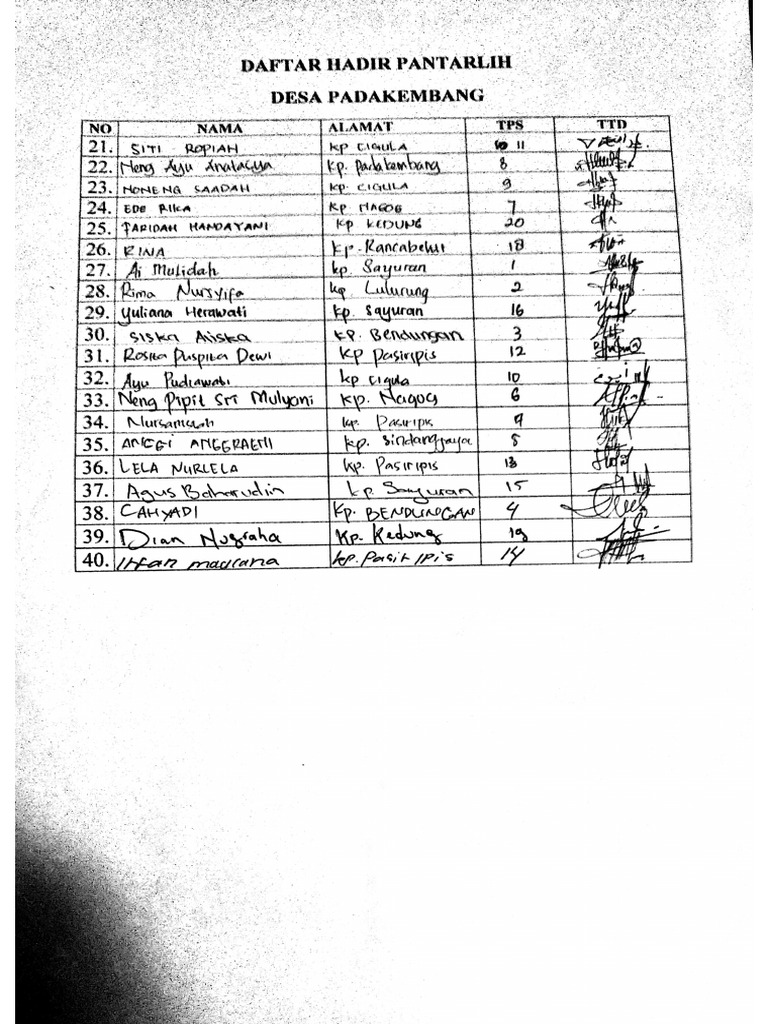 DAFTAR HADIR PANTARLIH
DESA PADAKEMBANG
NO NAMA ALAMAT TPS TTD
21. SITI ROPIAH KP CIGULA 11
22. Neng Ayu Kp. Padakembang 8
23. NONENG SAADAH KP. CIGULA 9
24. EDE RIKA KP NAGOG 7
25. FARIDAH HANDAYANI KP KEDUNG 20
26. RINA Kp. Rancabelut 18
27. Ai Mulidah kp. Sayuran 1
28. Rima Nursyifa kp Lulurung 2
29. Yuliana Herawati kp. Sayuran 16
30. Siska Aliska kp. Bendungan 3
31. Rosita Puspita Dewi Kp Pasiripis 12
32. Ayu Pudiawati kp cigula 10
33. Neng Pipit Sri Mulyani Kp. Nagog 6
34. kp. Pasiripis
35. ANGGI ANGGRAENI kp. Sindangjaya 5
36. LELA NURLELA kp. Pasiripis 13
37. Agus Baharudin kp. Sayuran 15
38. CAHYADI Kp. BENDUNGAN 4
39. Dian Nugraha Kp. Kedung 19
40. Irfan maulana kp. Pasir Ipis 14